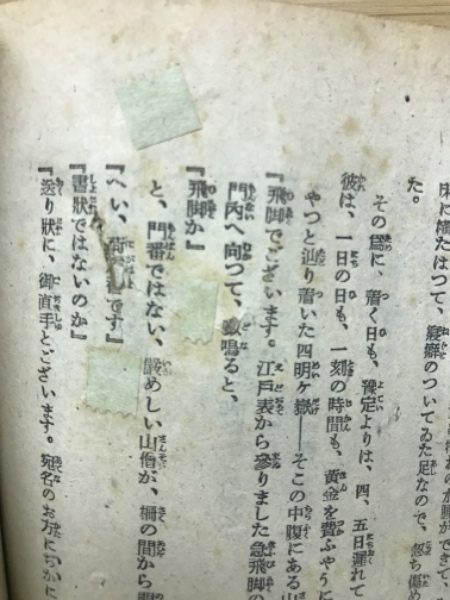 床に横たはつて、寢癖のついてゐた足なので、忽ち傷め
た。
その爲に、着く日も、豫定よりは、四、五日遲れて
彼は、一日の日も、一刻の時間も、黃金を費ふやうに
やつと辿り着いた四明ケ嶽――そこの中腹にある山
『飛脚でございます。江戸表から參りました急飛脚の
門内へ向つて、呶鳴ると、
『飛脚か』
と、門番ではない、嚴めしい山僧が、柵の間から
『へい、荷です』
『書狀ではないのか』
『送り狀に、御直手とございます。宛名のお方にぢかに